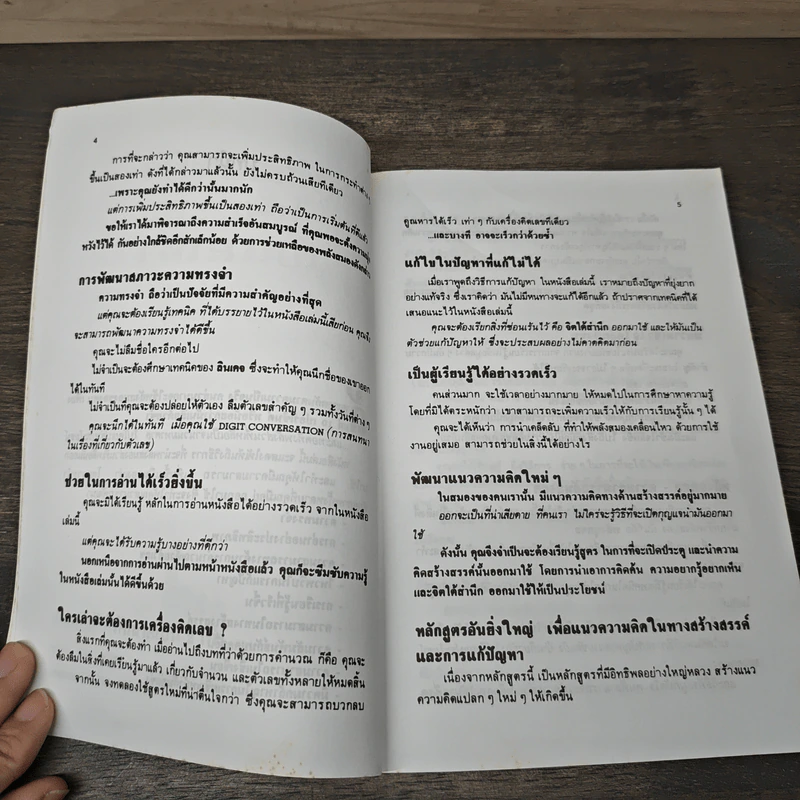 4
การที่จะกล่าวว่า คุณสามารถจะเพิ่มประสิทธิภาพ ในการกระทำ
ขึ้นเป็นสองเท่า ดังที่ได้กล่าวมาแล้วนั้น ยังไม่ครบถ้วนเสียทีเดียว
...เพราะคุณยังทำได้ดีกว่านั้นมากนัก
แต่การเพิ่มประสิทธิภาพขึ้นเป็นสองเท่า ถือว่าเป็นการเริ่มต้นที่ดีแล้ว
ขอให้เราได้มาพิจารณาถึงความสำเร็จอันสมบูรณ์ ที่คุณพอจะตั้งความ
หวังไว้ได้ กันอย่างใกล้ชิดอีกสักเล็กน้อย ด้วยการช่วยเหลือของพลังสมอง
การพัฒนาสภาวะความทรงจำ
ความทรงจำ ถือว่าเป็นปัจจัยที่มีความสำคัญอย่างที่สุด
แต่คุณจะต้องเรียนรู้เทคนิค ที่ได้บรรยายไว้ในหนังสือเล่มนี้เสียก่อน คุณจึง
จะสามารถพัฒนาความทรงจำได้ดีขึ้น
คุณจะไม่ลืมชื่อใครอีกต่อไป
ไม่จำเป็นจะต้องศึกษาเทคนิคของ ลินเคอ ซึ่งจะทำให้คุณนึกชื่อของเขาออก
ได้ในทันที
ไม่จำเป็นที่คุณจะต้องปล่อยให้ตัวเอง ลืมตัวเลขสำคัญ ๆ รวมทั้งวันที่ต่าง ๆ
คุณจะนึกได้ในทันที เมื่อคุณใช้ DIGIT CONVERSATION (การสนทนา
ในเรื่องที่เกี่ยวกับตัวเลข)
ช่วยในการอ่านได้เร็วยิ่งขึ้น
คุณจะมิได้เรียนรู้ หลักในการอ่านหนังสือได้อย่างรวดเร็ว จากในหนังสือ
เล่มนี้
แต่คุณจะได้รับความรู้บางอย่างที่ดีกว่า
นอกเหนือจากการอ่านผ่านไปตามหน้าหนังสือแล้ว คุณก็จะซึมซับความรู้
ในหนังสือเล่มนั้นได้ดีขึ้นด้วย
ใครเล่าจะต้องการเครื่องคิดเลข ?
สิ่งแรกที่คุณจะต้องทำ เมื่ออ่านไปถึงบทที่ว่าด้วยการคำนวณ ก็คือ คุณจะ
ต้องลืมในสิ่งที่เคยเรียนรู้มาแล้ว เกี่ยวกับจำนวน และตัวเลขทั้งหลายให้หมดสิ้น
จากนั้น จงทดลองใช้สูตรใหม่ที่น่าตื่นใจกว่า ซึ่งคุณจะสามารถบวกลบ
5
คูณหารได้เร็ว เท่า ๆ กับเครื่องคิดเลขทีเดียว
...และบางที อาจจะเร็วกว่าด้วยซ้ำ
แก้ไขในปัญหาที่แก้ไม่ได้
เมื่อเราพูดถึงวิธีการแก้ปัญหา ในหนังสือเล่มนี้ เราหมายถึงปัญหาที่ยุ่งยาก
อย่างแท้จริง ซึ่งเราคิดว่า มันไม่มีหนทางจะแก้ได้อีกแล้ว ถ้าปราศจากเทคนิคที่ได้
เสนอแนะไว้ในหนังสือเล่มนี้
คุณจะต้องเรียกสิ่งที่ซ่อนเร้นไว้ คือ จิตใต้สำนึก ออกมาใช้ และให้มันเป็น
ตัวช่วยแก้ปัญหาให้ ซึ่งจะประสบผลอย่างไม่คาดคิดมาก่อน
เป็นผู้เรียนรู้ได้อย่างรวดเร็ว
คนส่วนมาก จะใช้เวลาอย่างมากมาย ให้หมดไปในการศึกษาหาความรู้
โดยที่มิได้ตระหนักว่า เขาสามารถจะเพิ่มความเร็วให้กับการเรียนรู้นั้น ๆ ได้
คุณจะได้เห็นว่า การนำเคล็ดลับ ที่ทำให้พลังสมองเคลื่อนไหว ด้วยการใช้
งานอยู่เสมอ สามารถช่วยในสิ่งนี้ได้อย่างไร
พัฒนาแนวความคิดใหม่ ๆ
ในสมองของคนเรานั้น มีแนวความคิดทางด้านสร้างสรรค์อยู่มากมาย
ออกจะเป็นที่น่าเสียดาย ที่คนเรา ไม่ใคร่จะรู้วิธีที่จะเปิดกุญแจนำมันออกมา
ใช้
ดังนั้น คุณจึงจำเป็นจะต้องเรียนรู้สูตร ในการที่จะเปิดประตู และนำความ
คิดสร้างสรรค์นั้นออกมาใช้ โดยการนำเอาการคิดค้น ความอยากรู้อยากเห็น
และจิตใต้สำนึก ออกมาใช้ให้เป็นประโยชน์
หลักสูตรอันยิ่งใหญ่ เพื่อแนวความคิดในทางสร้างสรรค์
และการแก้ปัญหา
เนื่องจากหลักสูตรนี้ เป็นหลักสูตรที่มีอิทธิพลอย่างใหญ่หลวง สร้างแนว
ความคิดแปลก ๆ ใหม่ ๆ ให้เกิดขึ้น